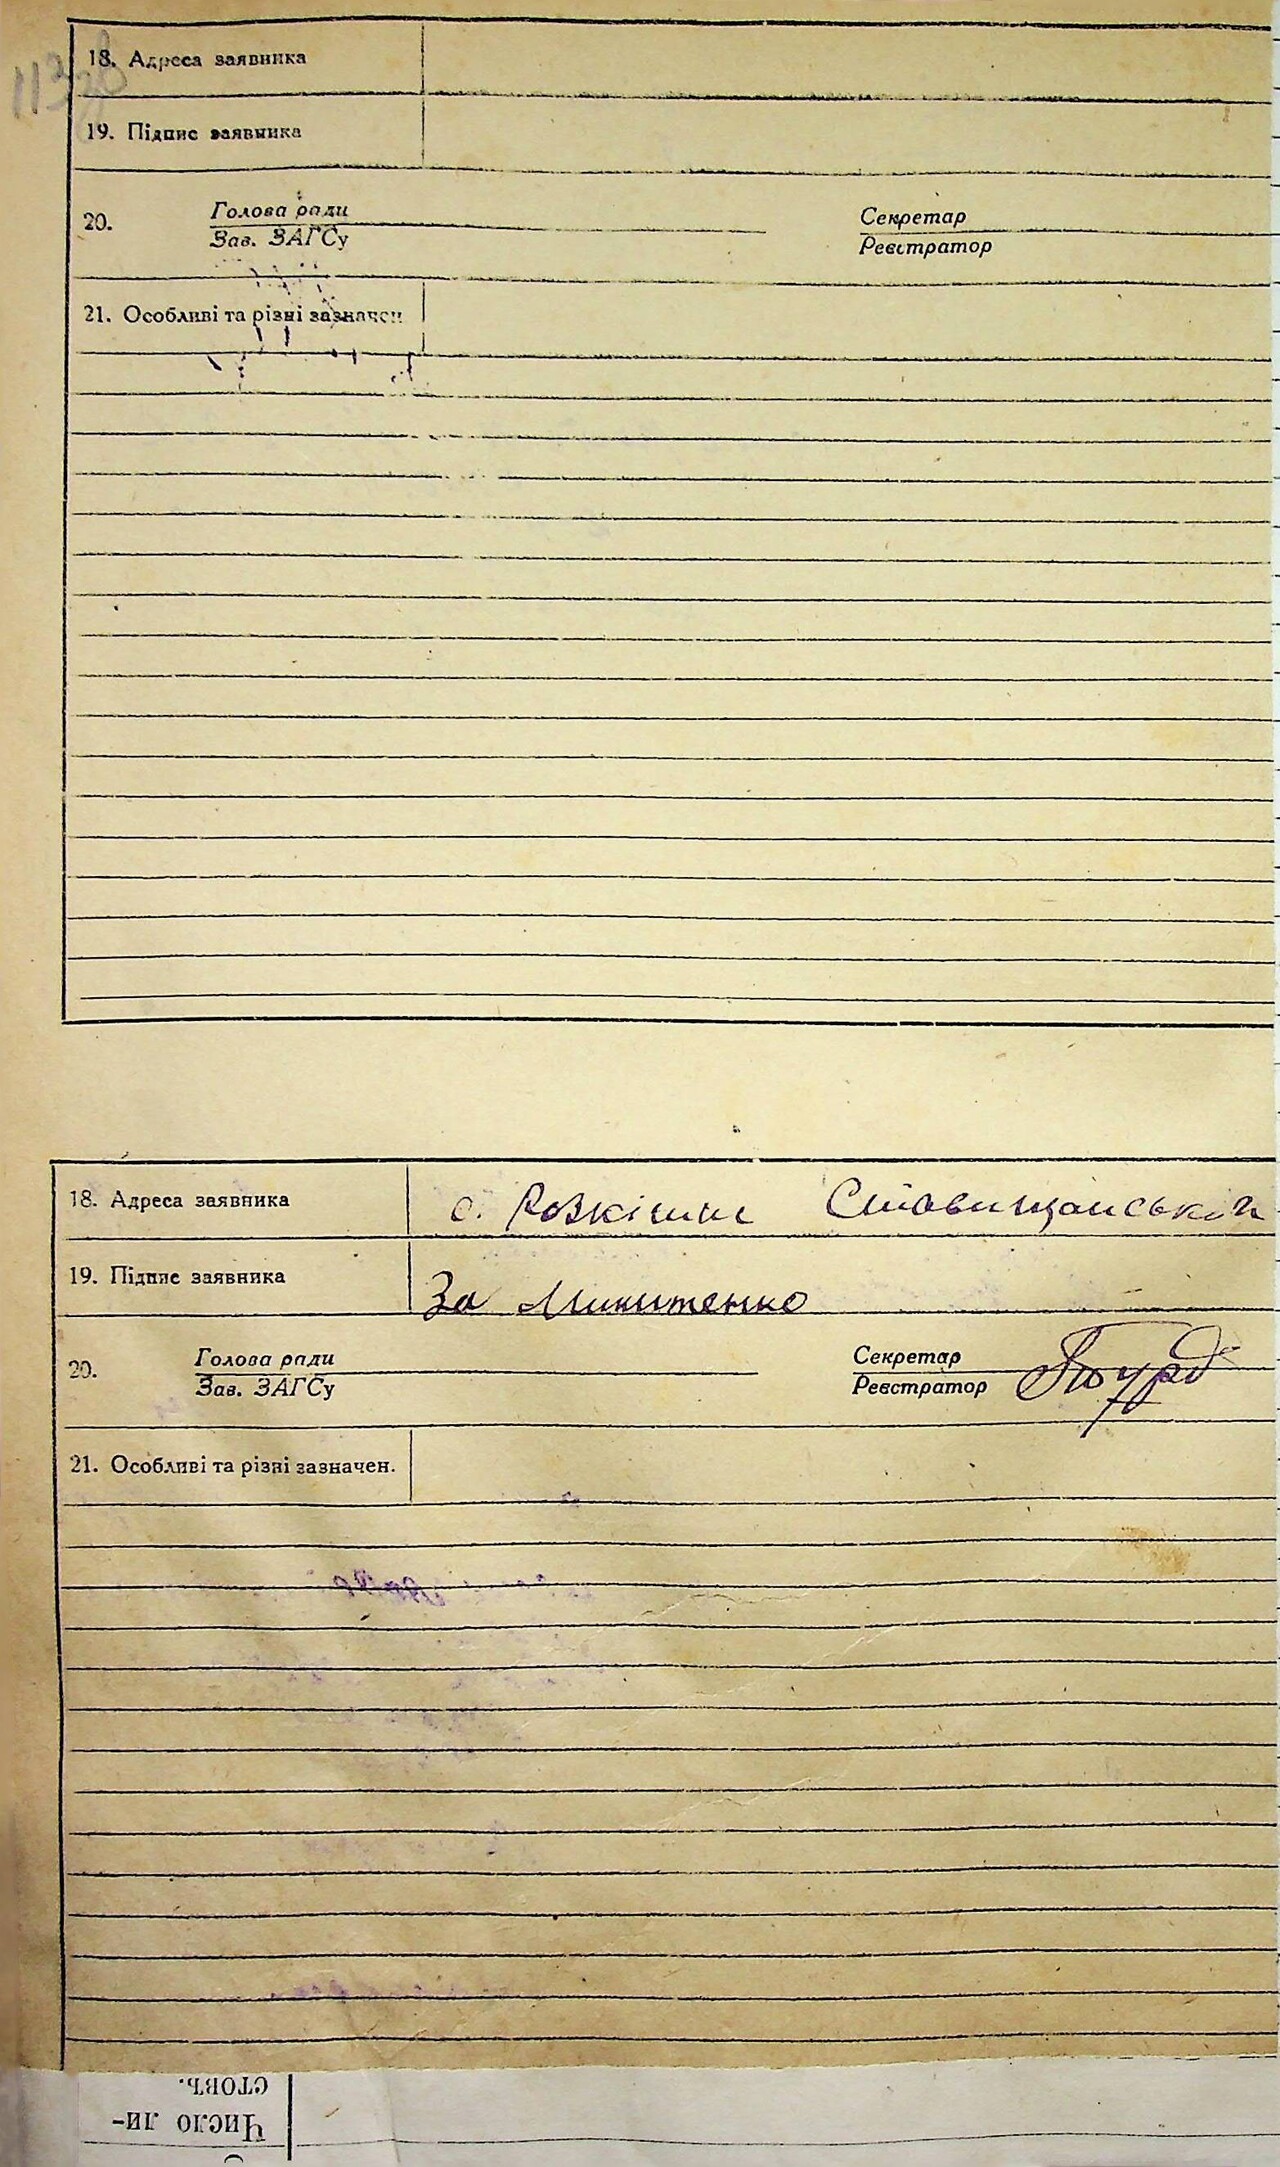 18. Адреса заявника
19. Підпис заявника
20. Голова ради
Зав. ЗАГСу
Секретар
Реєстратор
21. Особливі та різні зазначен.
18. Адреса заявника с. Розкішне Ставищанський
19. Підпис заявника За Микитенко
20. Голова ради
Зав. ЗАГСу
Секретар
Реєстратор
21. Особливі та різні зазначен.
Число ли-
стовъ.